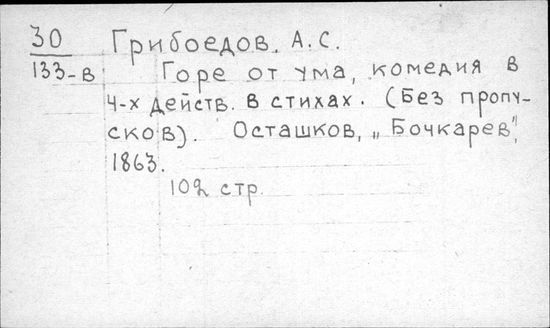 30 Грибоедов, А.С.
133-в Горе от ума, комедия в
4-х действ. в стихах. (Без пропу-
сков). Осташков, „Бочкарев",
1863.
102 стр.